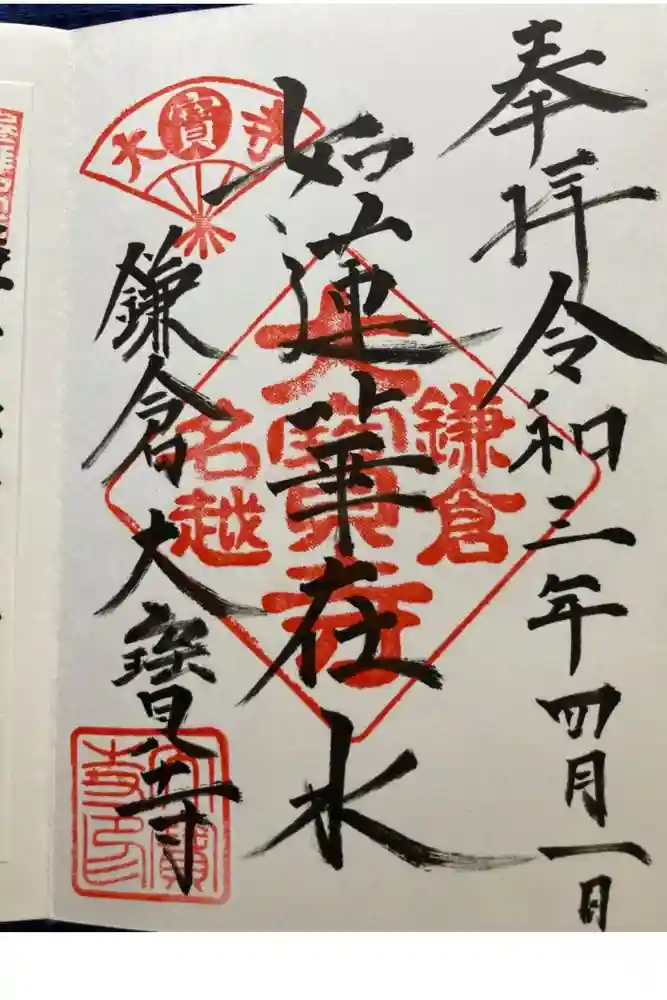 奉拝 令和三年四月一日
如蓮華在水
鎌倉 大寶寺
鎌倉
大寳寺
名越
寶
大